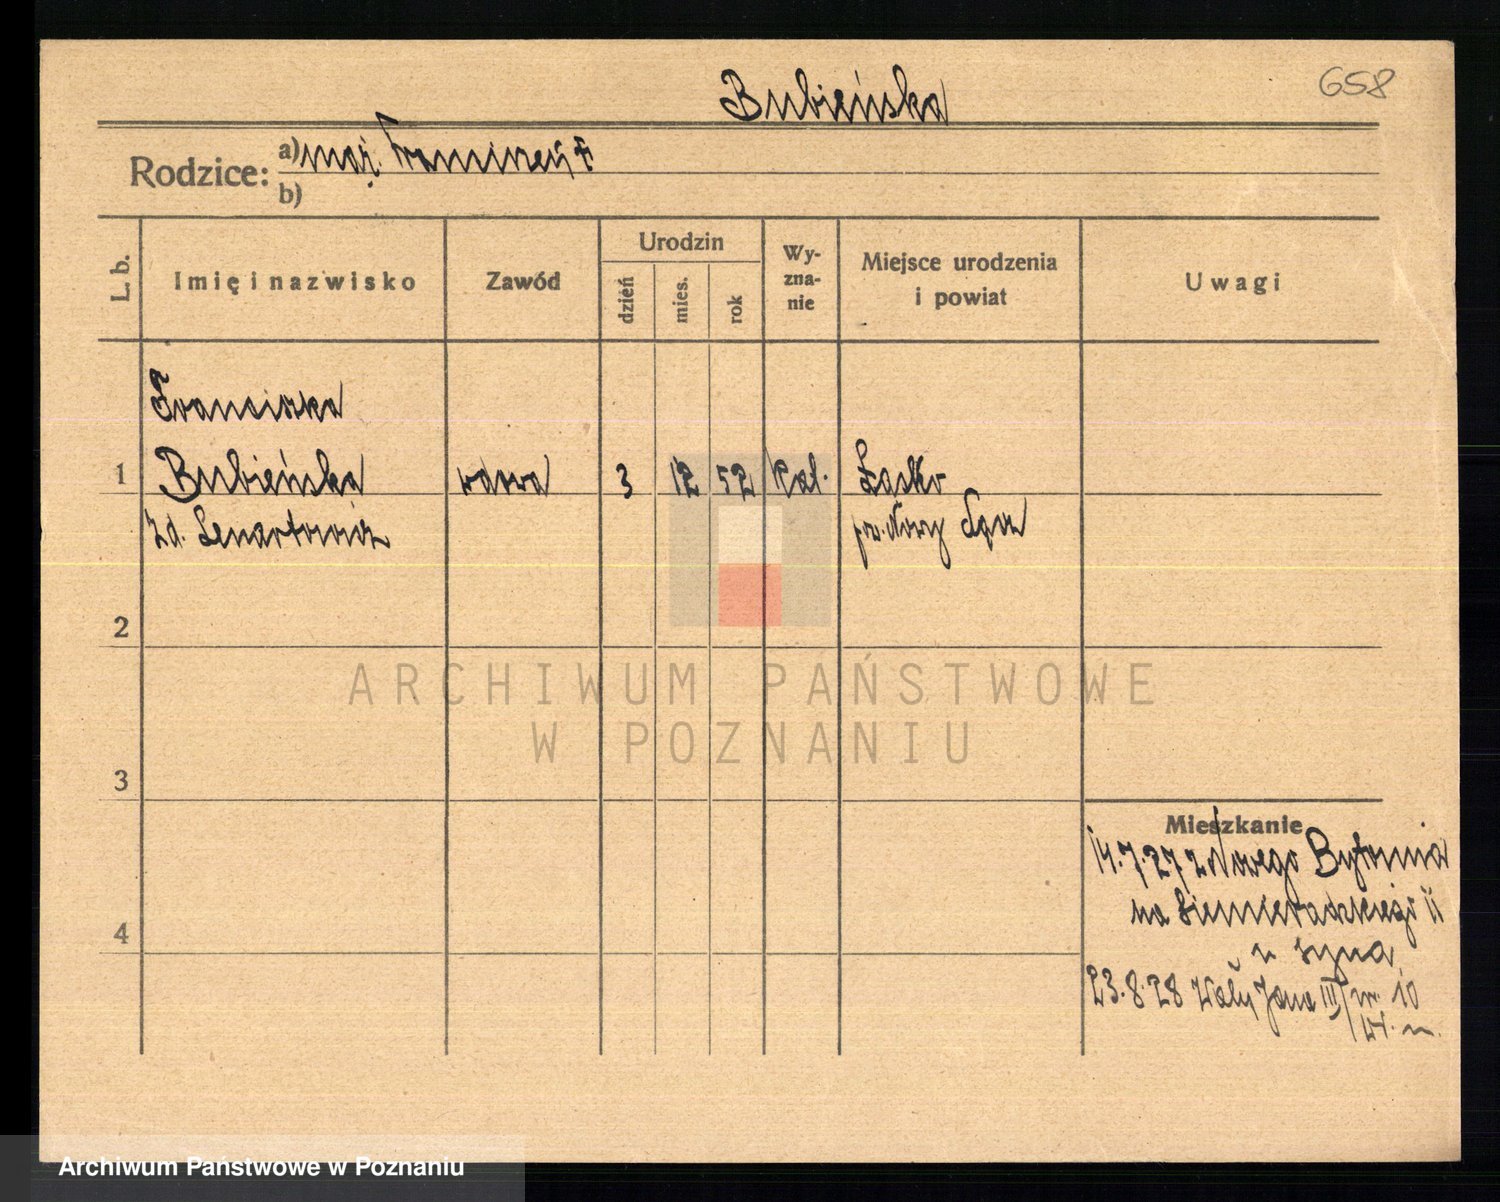 658
Bubieńska
Rodzice: a) mąż
b)
L. b.
Imię i nazwisko
Zawód
Urodzin
dzień
mies.
rok
Wy-
zna-
nie
Miejsce urodzenia
i powiat
Uwagi
Franciszka
1 Bubieńska wdowa 3 12 52 kat. Łącko
zd. Lenartowicz pow. Nowy Sącz
2
3
4
Mieszkanie
14.7.27 z Nowego Bytomia
na Siemieradzkiego 11
u syna
23.8.28 Wały Jana III nr. 10
ARCHIWUM PAŃSTWOWE
W POZNANIU
Archiwum Państwowe w Poznaniu